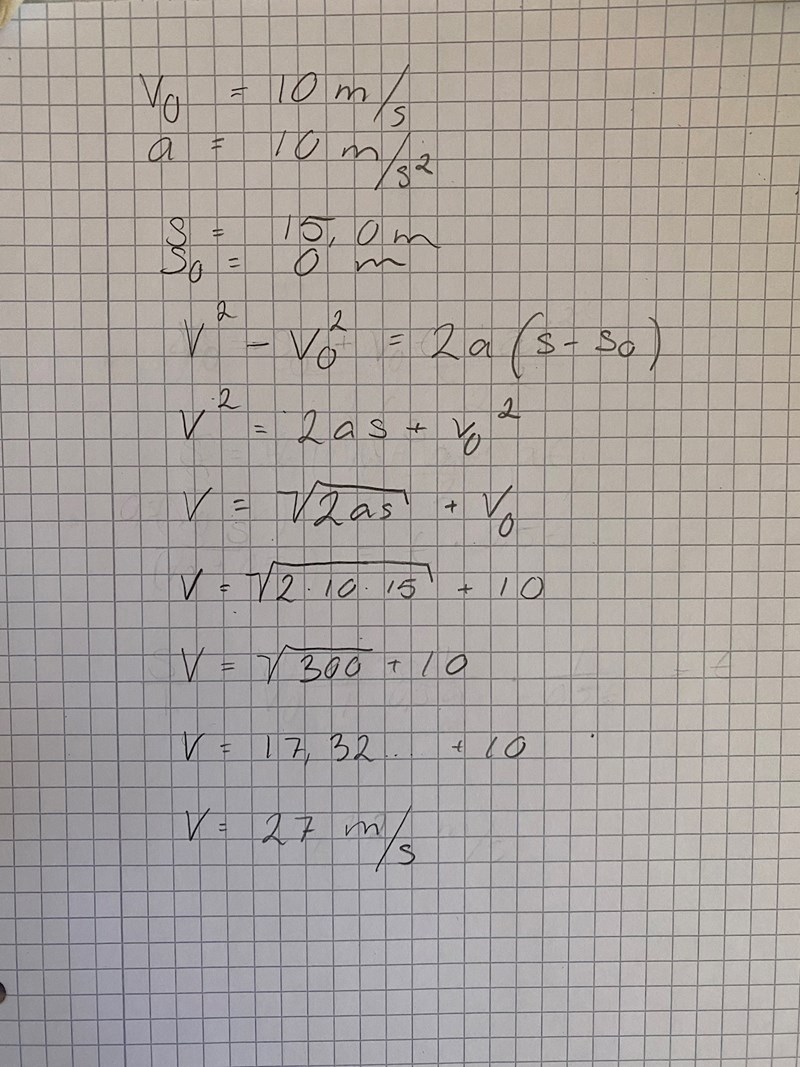 V₀ = 10 m/s
a = 10 m/s²
s = 15,0 m
s₀ = 0 m
V² - V₀² = 2a(s - s₀)
V² = 2as + v₀²
V = √2as + V₀
V = √2·10·15 + 10
V = √300 + 10
V = 17,32... + 10
V = 27 m/s